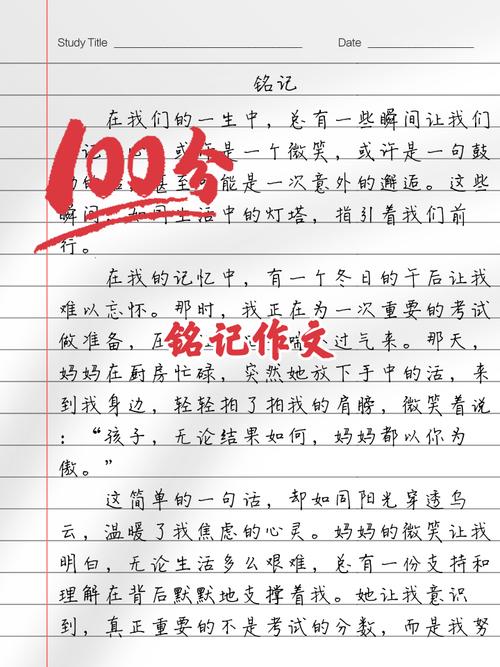 Study Title
Date
铭记
在我们的一生中，总有一些瞬间让我们
100分
记 心 或许是一个微笑，或许是一句鼓
的 甚至可能是一次意外的邂逅。这些
瞬间，如同生活中的灯塔，指引着我们前
行。
在我的记忆中，有一个冬日的午后让我
难以忘怀。那时，我正在为一次重要的考试
铭记作文
做准备，压 喘不过气来。那天，
妈妈在厨房忙碌，突然她放下手中的活，来
到我身边，轻轻拍了拍我的肩膀，微笑着说
：“孩子，无论结果如何，妈妈都以你为
傲。”
这简单的一句话，却如同阳光穿透乌
云，温暖了我焦虑的心灵。妈妈的微笑让我
明白，无论生活多么艰难，总有一份支持和
理解在背后默默地支撑着我。她让我意识
到，真正重要的不是考试的分数，而是我努